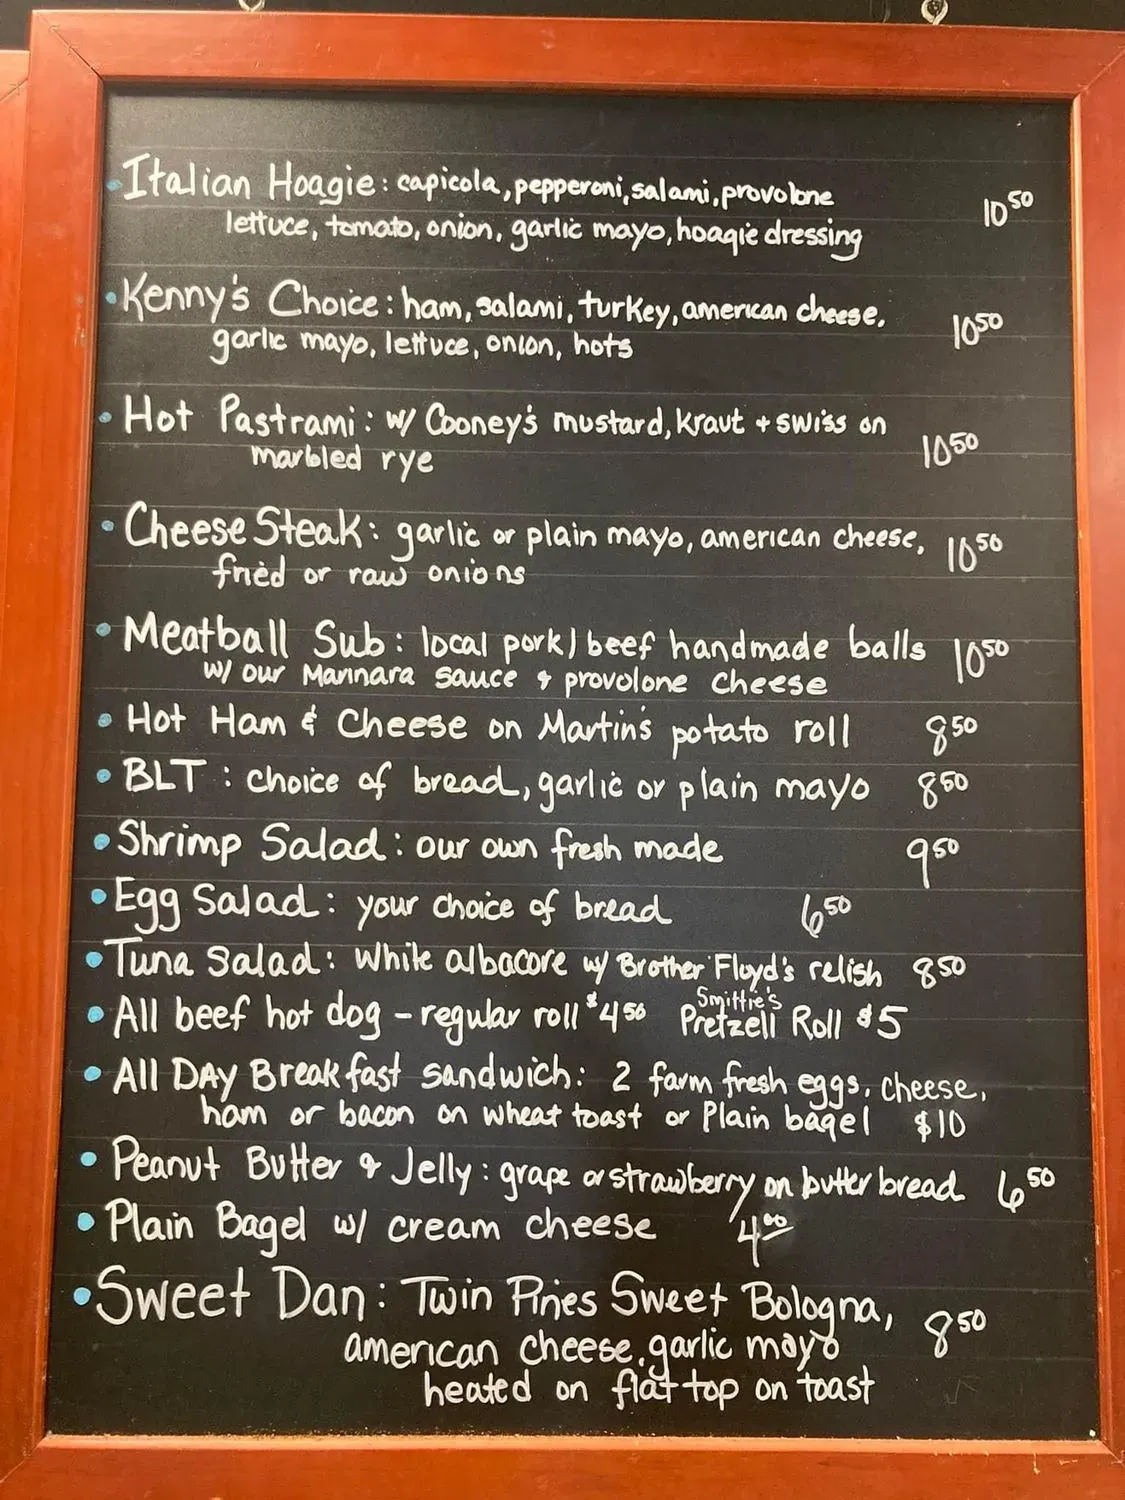 Italian Hoagie: capicola, pepperoni, salami, provolone 10⁵⁰
lettuce, tomato, onion, garlic mayo, hoagie dressing
Kenny's Choice: ham, salami, turkey, american cheese, 10⁵⁰
garlic mayo, lettuce, onion, hots
Hot Pastrami: w/ Cooney's mustard, kraut + swiss on 10⁵⁰
marbled rye
Cheese Steak: garlic or plain mayo, american cheese, 10⁵⁰
fried or raw onions
Meatball Sub: local pork/beef handmade balls 10⁵⁰
w/ our Marinara sauce & provolone cheese
Hot Ham & Cheese on Martin's potato roll 8⁵⁰
BLT: choice of bread, garlic or plain mayo 8⁵⁰
Shrimp Salad: our own fresh made 9⁵⁰
Egg Salad: your choice of bread 6⁵⁰
Tuna Salad: White albacore w/ Brother Floyd's relish 8⁵⁰
All beef hot dog - regular roll $4⁵⁰ Smittie's Pretzell Roll $5
All DAY Breakfast sandwich: 2 farm fresh eggs, cheese,
ham or bacon on wheat toast or Plain bagel $10
Peanut Butter & Jelly: grape or strawberry on butter bread 6⁵⁰
Plain Bagel w/ cream cheese 4⁰⁰
Sweet Dan: Twin Pines Sweet Bologna, 8⁵⁰
american cheese, garlic mayo
heated on flat top on toast